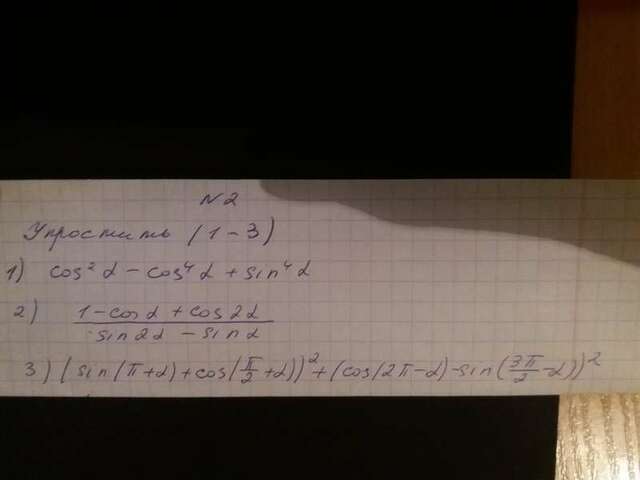 N2
Упростить (1-3)
1) cos²α - cos⁴α + sin⁴α
2) (1 - cosα + cos2α)/(sin2α - sinα)
3) (sin(π+α) + cos(π/2+α))² + (cos(2π-α) - sin(3π/2-α))²